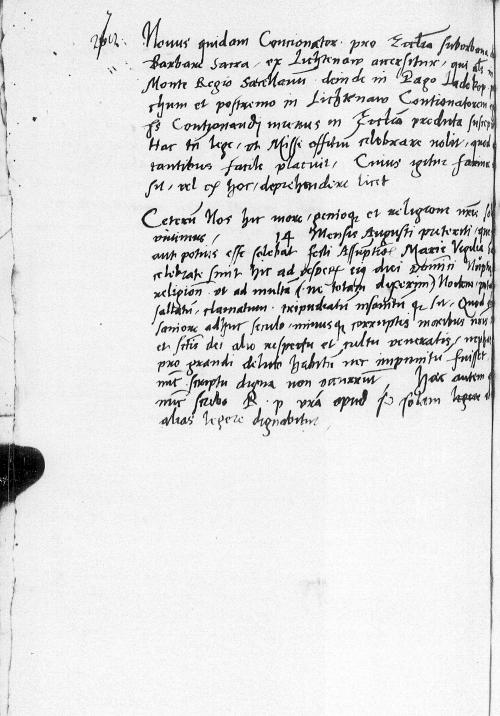 Nouus quidam Concionator pro Ecclia suborbana
Barbare Sacra, ex Lichtenaw accersitur, qui als
Monte Regio Sacellanus deinde in Pago Ladekop
chum et postremo in Lichtenaw Contionatorem
Is Contionandi munus in Ecclia predicta suscep
Hac tn lege, vt Misse officiu celebrare nolit, quod
tantibus facile placuit, Cuius igitur farine
sit, vel ex hoc, deprehendere licet
Ceteru Nos hic more, genioque et religione nra
viuimus, 14 Mensis Augusti preteriti, que
aut potius esse solebat festi Assuptiois Marie Vigilia
celebrate sunt hic ad vesperu eius diei Domini Nuptie
religion vt ad multa (ne totam dixerim) Noctem
saltatu, clamatum tripudiatu insanitu qz sit, Quod
saniore adhuc seculo, minusqz corruptis moribus
et festi dei alio respectu et cultu veneratis,
pro grandi delicto habitu nec impunitu fuisset
nuc scriptu digna non Hac autem
nuc scribo R. p vra apud se solam legere
alias legere dignabitur